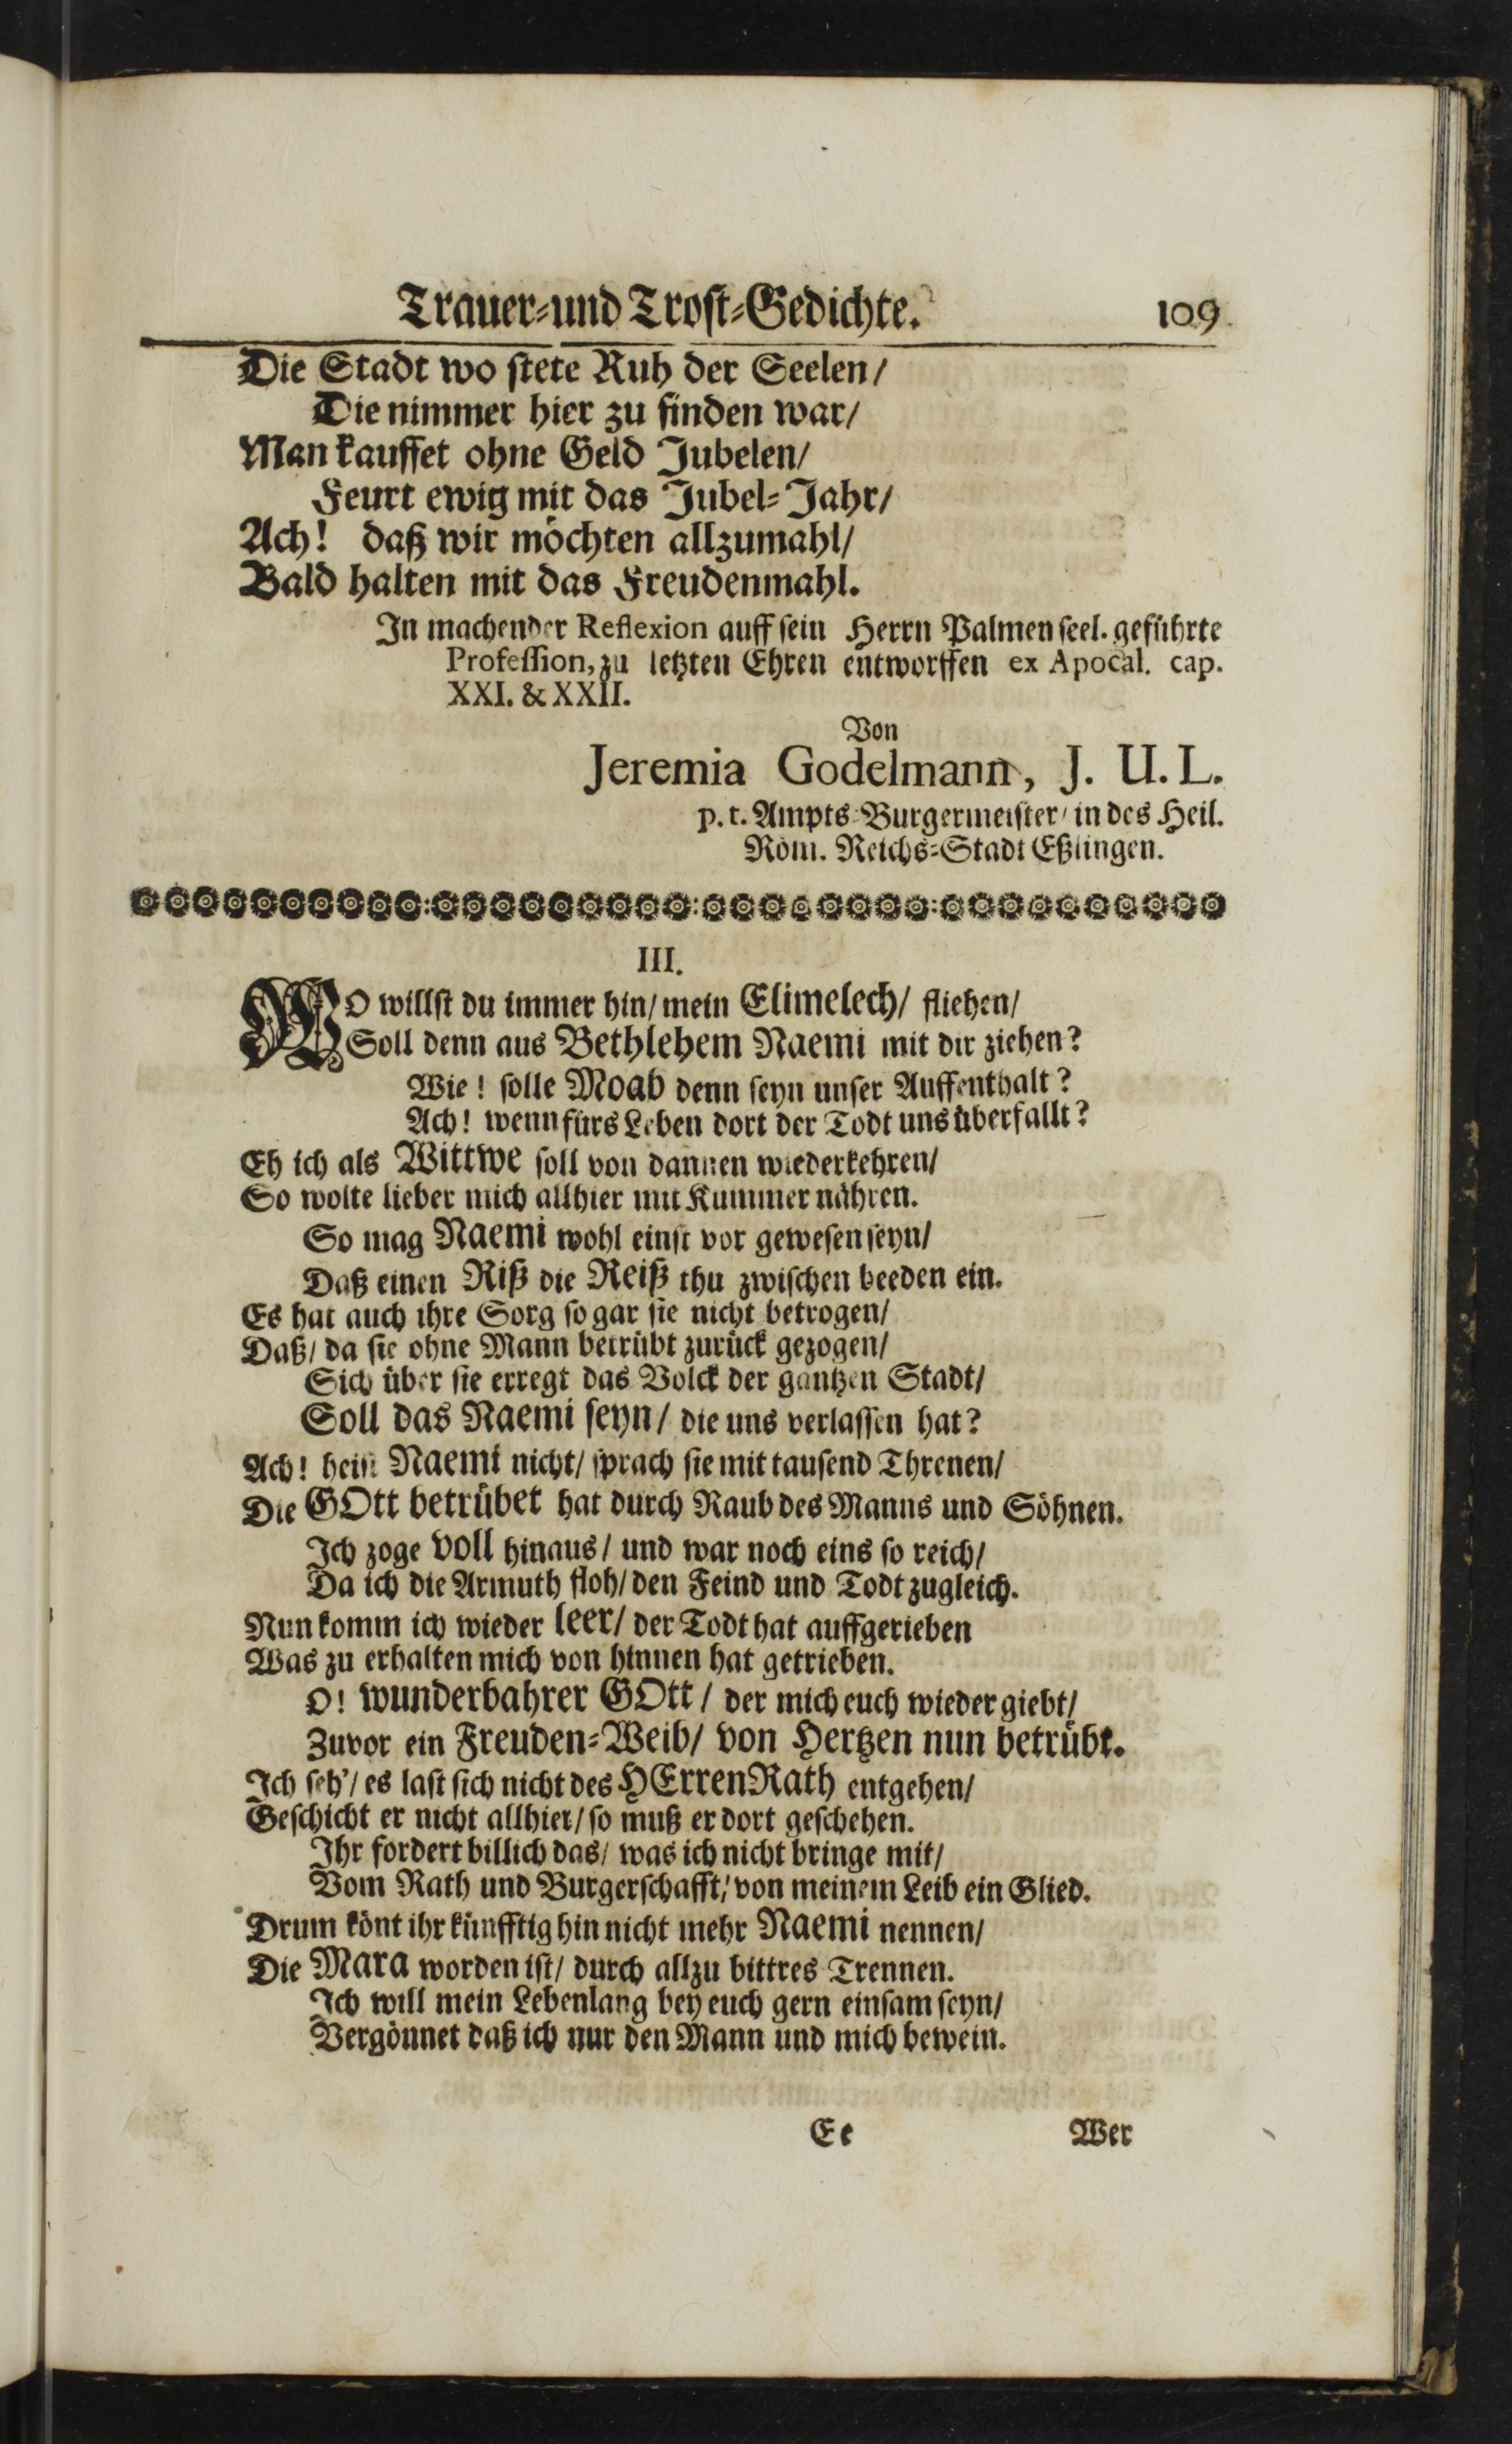 Trauer-und Trost-Gedichte. 109
Die Stadt wo stete Ruh der Seelen/
Die nimmer hier zu finden war/
Man kauffet ohne Geld Jubelen/
Feurt ewig mit das Jubel-Jahr/
Ach! daß wir möchten allzumahl/
Bald halten mit das Freudenmahl.
In machender Reflexion auff sein Herrn Palmen seel. geführte
Profession, zu letzten Ehren entworffen ex Apocal. cap.
XXI. & XXII.
Von
Jeremia Godelmann, J. U. L.
p. t. Ampts-Burgermeister/ in des Heil.
Röm. Reichs-Stadt Eßlingen.
III.
WO willst du immer hin/ mein Elimelech/ fliehen/
Soll denn aus Bethlehem Naemi mit dir ziehen?
Wie! solle Moab denn seyn unser Auffenthalt?
Ach! wenn fürs Leben dort der Todt uns überfallt?
Eh ich als Wittwe soll von dannen wiederkehren/
So wolte lieber mich allhier mit Kummer nähren.
So mag Naemi wohl einst vor gewesen seyn/
Daß einen Riß die Reiß thu zwischen beeden ein.
Es hat auch ihre Sorg so gar sie nicht betrogen/
Daß/ da sie ohne Mann betrübt zurück gezogen/
Sich über sie erregt das Volck der gantzen Stadt/
Soll das Naemi seyn/ die uns verlassen hat?
Ach! heist Naemi nicht/ sprach sie mit tausend Threnen/
Die GOtt betrübet hat durch Raub des Manns und Söhnen.
Ich zoge voll hinaus/ und war noch eins so reich/
Da ich die Armuth floh/ den Feind und Todt zugleich.
Nun komm ich wieder leer/ der Todt hat auffgerieben
Was zu erhalten mich von hinnen hat getrieben.
O! wunderbahrer GOtt/ der mich euch wieder giebt/
Zuvor ein Freuden-Weib/ von Hertzen nun betrübt.
Ich seh'/ es last sich nicht des HErren Rath entgehen/
Geschicht er nicht allhier/ so muß er dort geschehen.
Ihr fordert billich das/ was ich nicht bringe mit/
Vom Rath und Burgerschafft/ von meinem Leib ein Glied.
Drum könt ihr künfftig hin nicht mehr Naemi nennen/
Die Mara worden ist/ durch allzu bittres Trennen.
Ich will mein Lebenlang bey euch gern einsam seyn/
Vergönnet daß ich nur den Mann und mich bewein.
Ee Wer